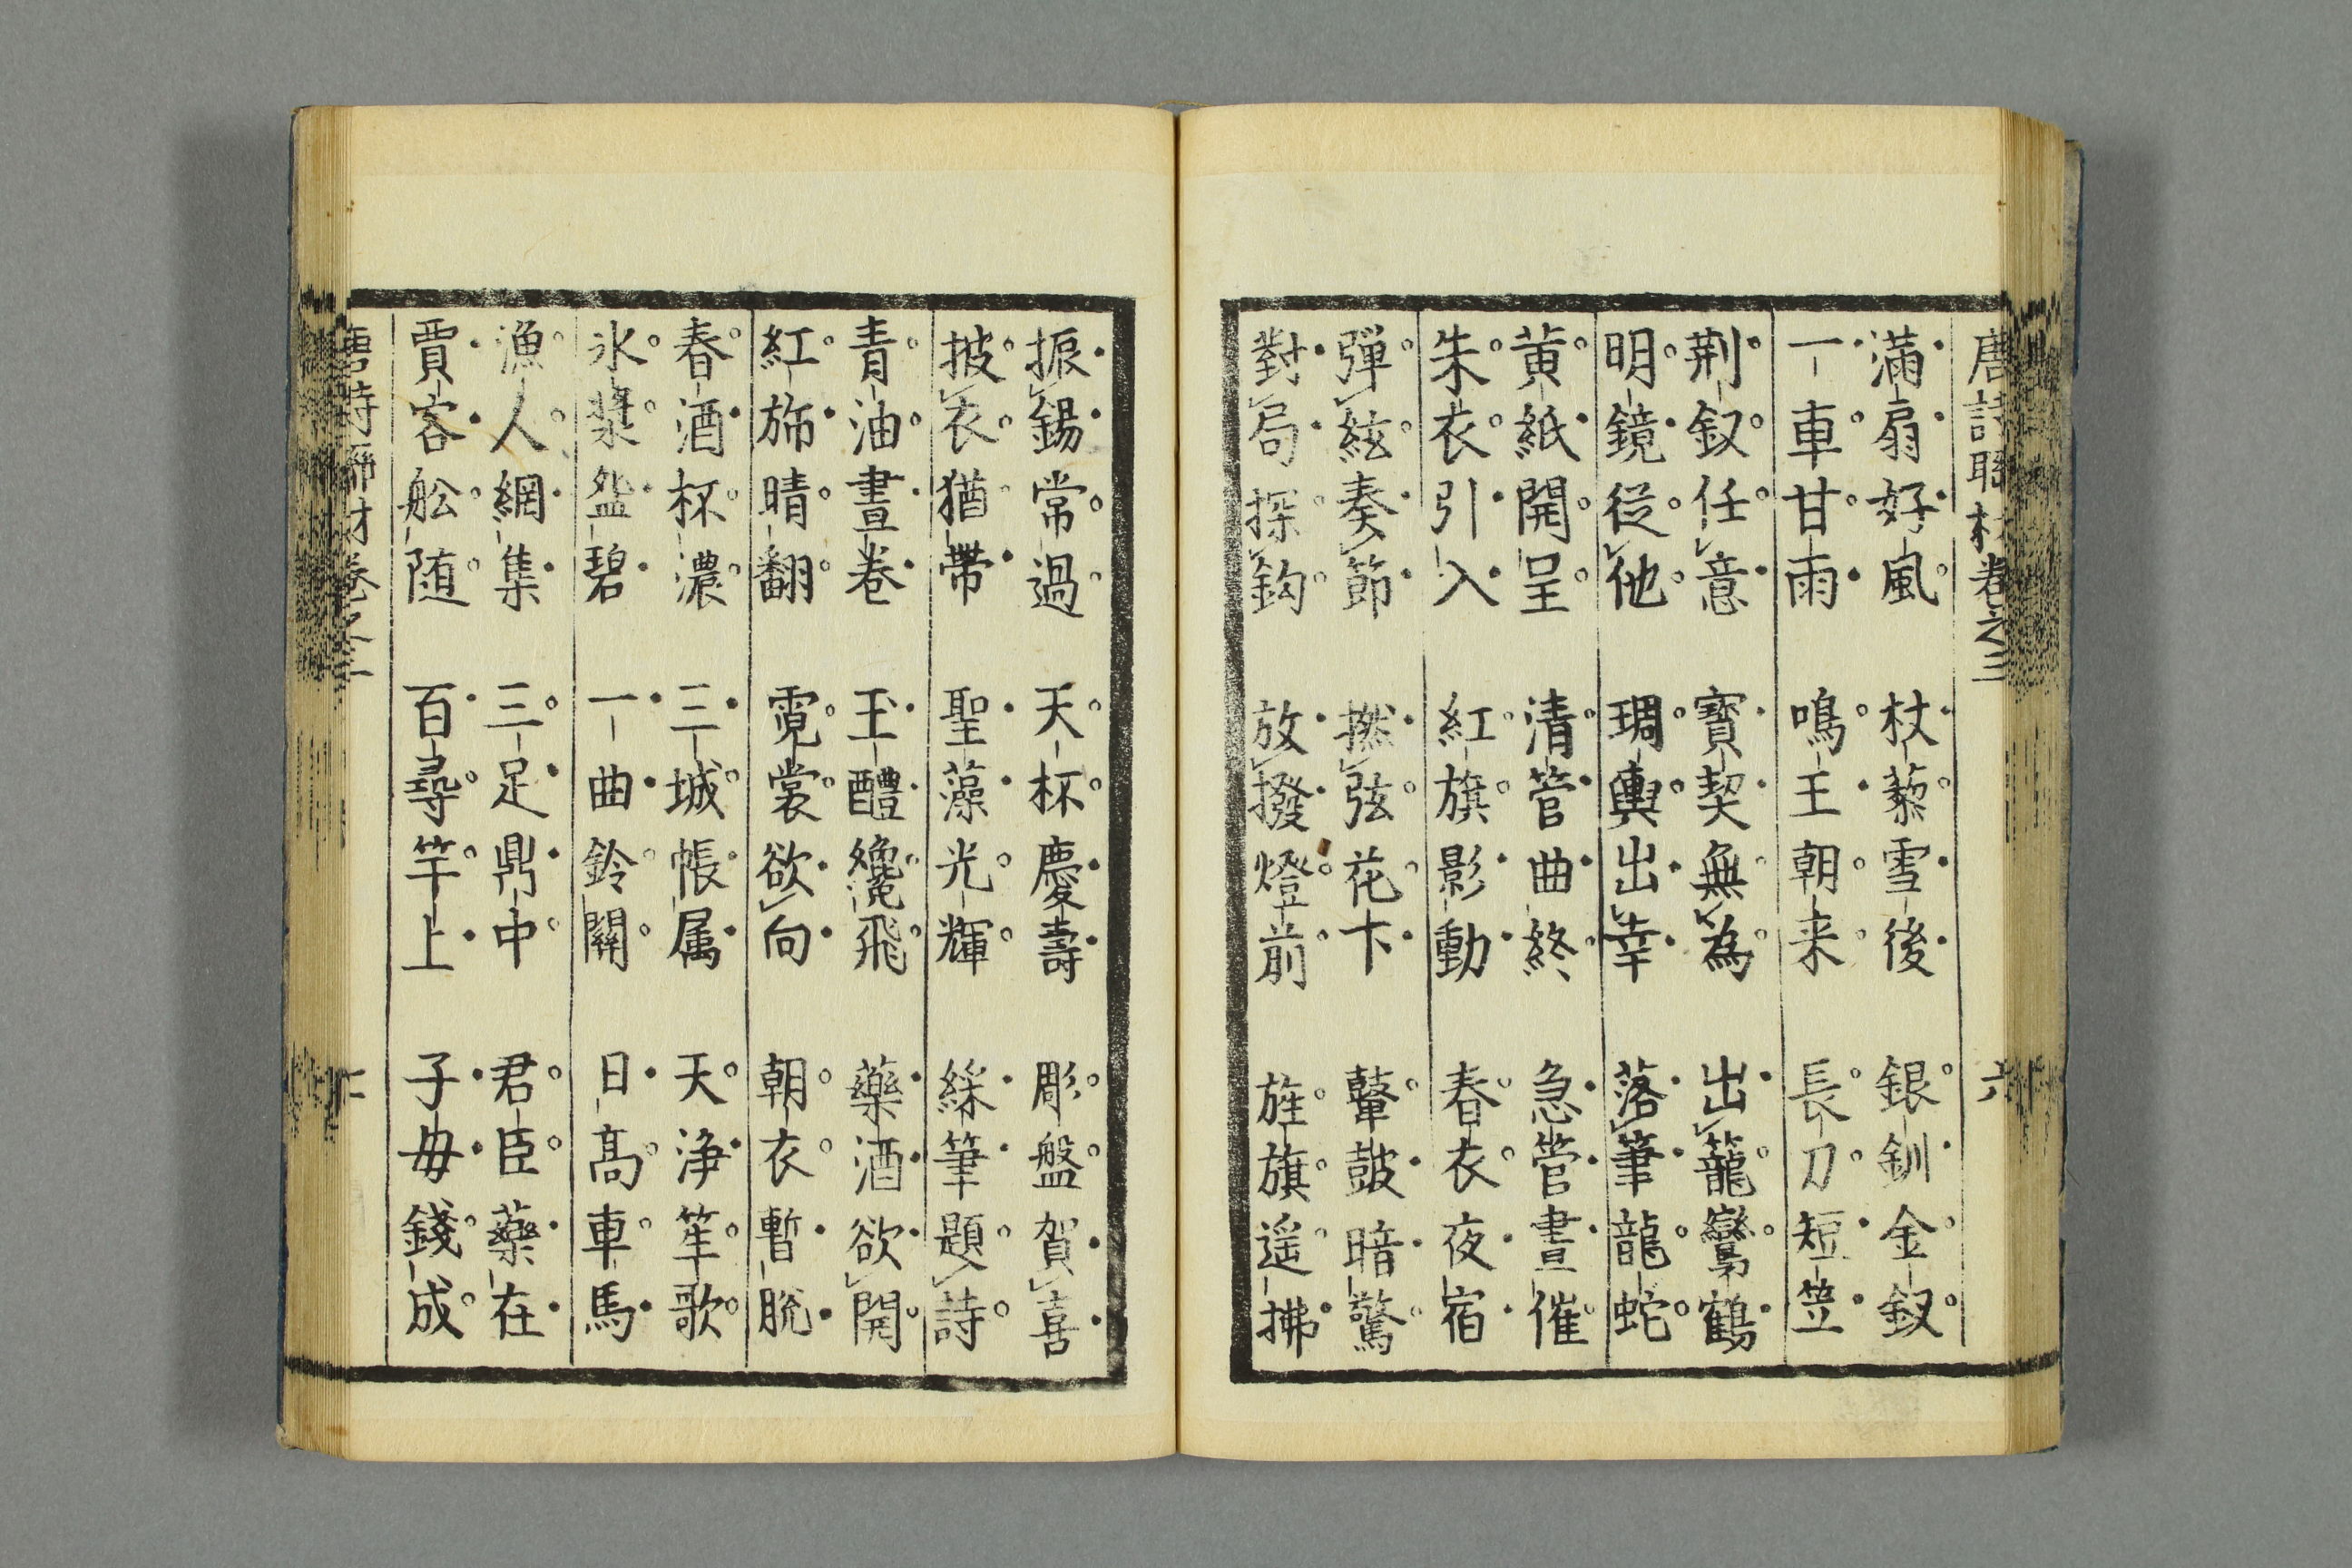 唐詩聯材卷之三 六
滿扇好風 杖藜雪後 銀釧金釵
一車甘雨 鳴王朝来 長刀短笠
荆釵任意 寳契無為 出籠鸞鶴
明鏡從他 琱輿出幸 落筆龍蛇
黄紙開呈 清管曲終 急管晝催
朱衣引入 紅旗影動 春衣夜宿
彈絃奏節 撚弦花下 鼙鼓暗驚
對局探鈎 放撥燈前 旌旗遥拂
振錫常過 天杯慶壽 彫盤賀喜
披衣猶帶 聖藻光輝 綵筆題詩
青油晝卷 玉醴纔飛 藥酒欲開
紅斾晴翻 霓裳欲向 朝衣暫脱
春酒杯濃 三城帳属 天浄笙歌
氷漿盌碧 一曲鈴關 日髙車馬
漁人網集 三足鼎中 君臣藥在
賈客舩随 百尋竿上 子母錢成
唐詩聯材卷之三